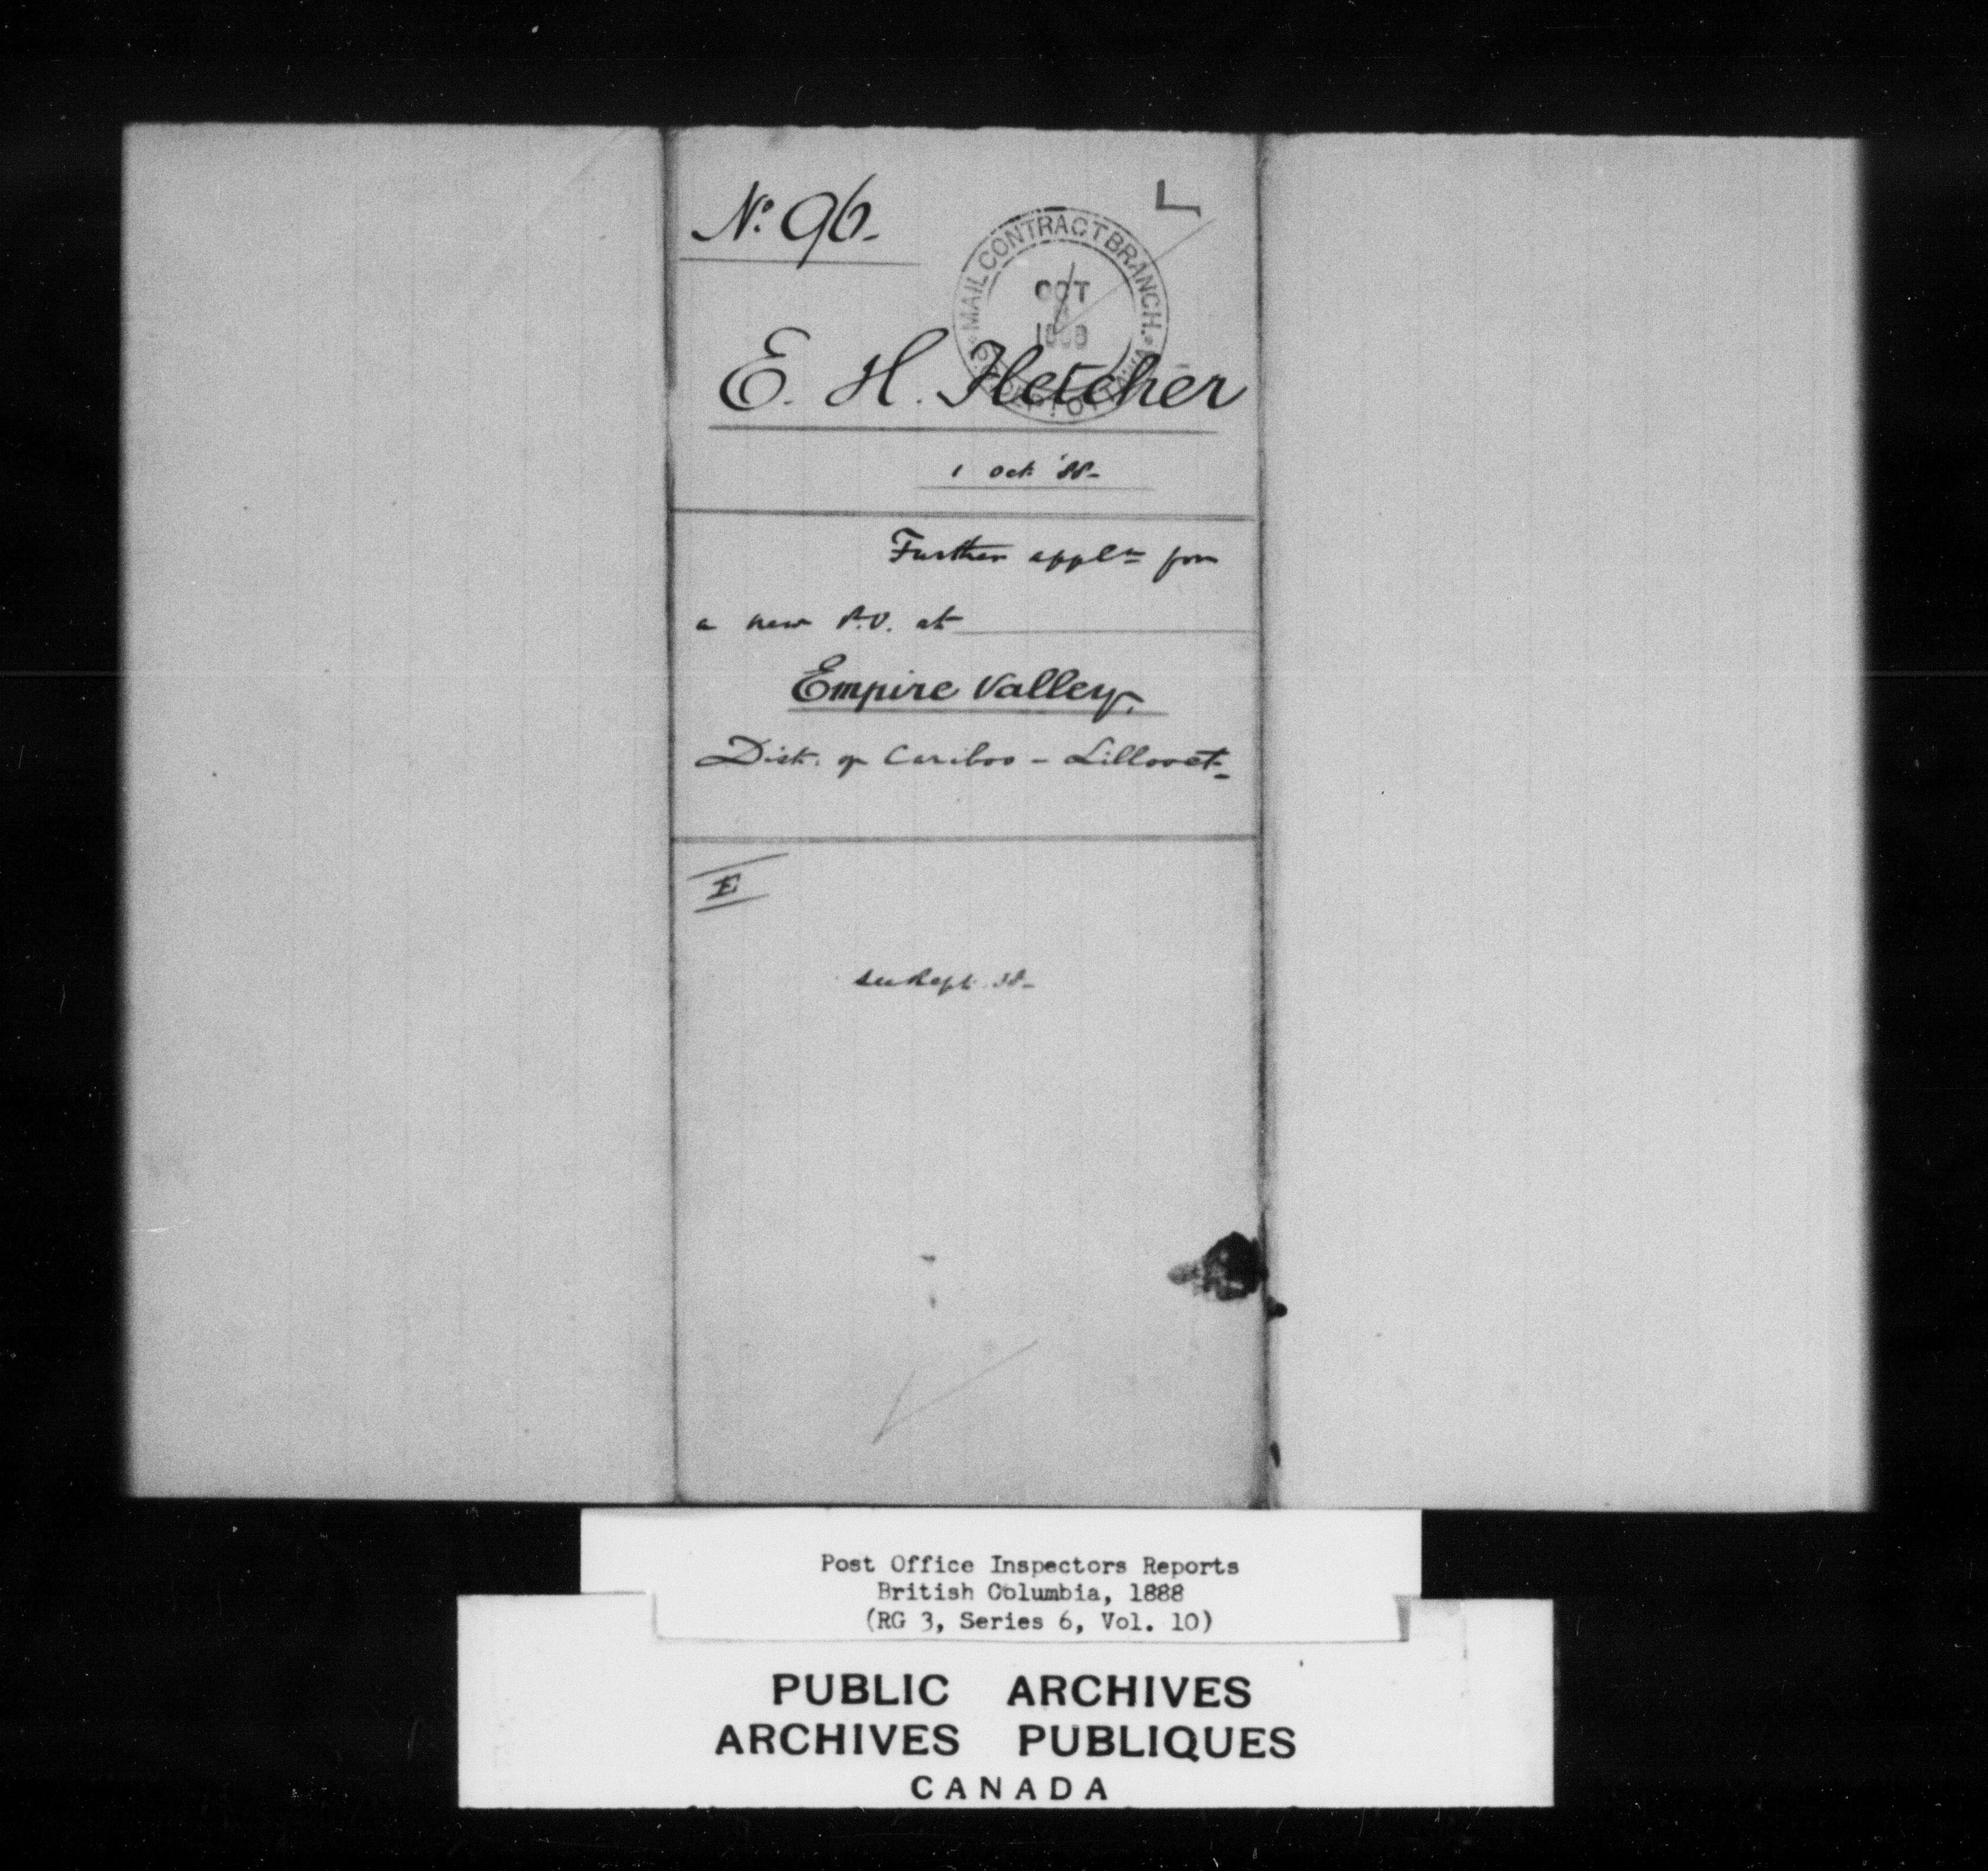 No. 96.
MAIL CONTRACT BRANCH.
OCT
1888
E. H. Fletcher
1 Oct '88-
Further appln for
a new P.O. at
Empire Valley.
Dist. of Cariboo - Lillooet-
E
see Rept. 38-
Post Office Inspectors Reports
British Columbia, 1888
(RG 3, Series 6, Vol. 10)
PUBLIC ARCHIVES
ARCHIVES PUBLIQUES
CANADA